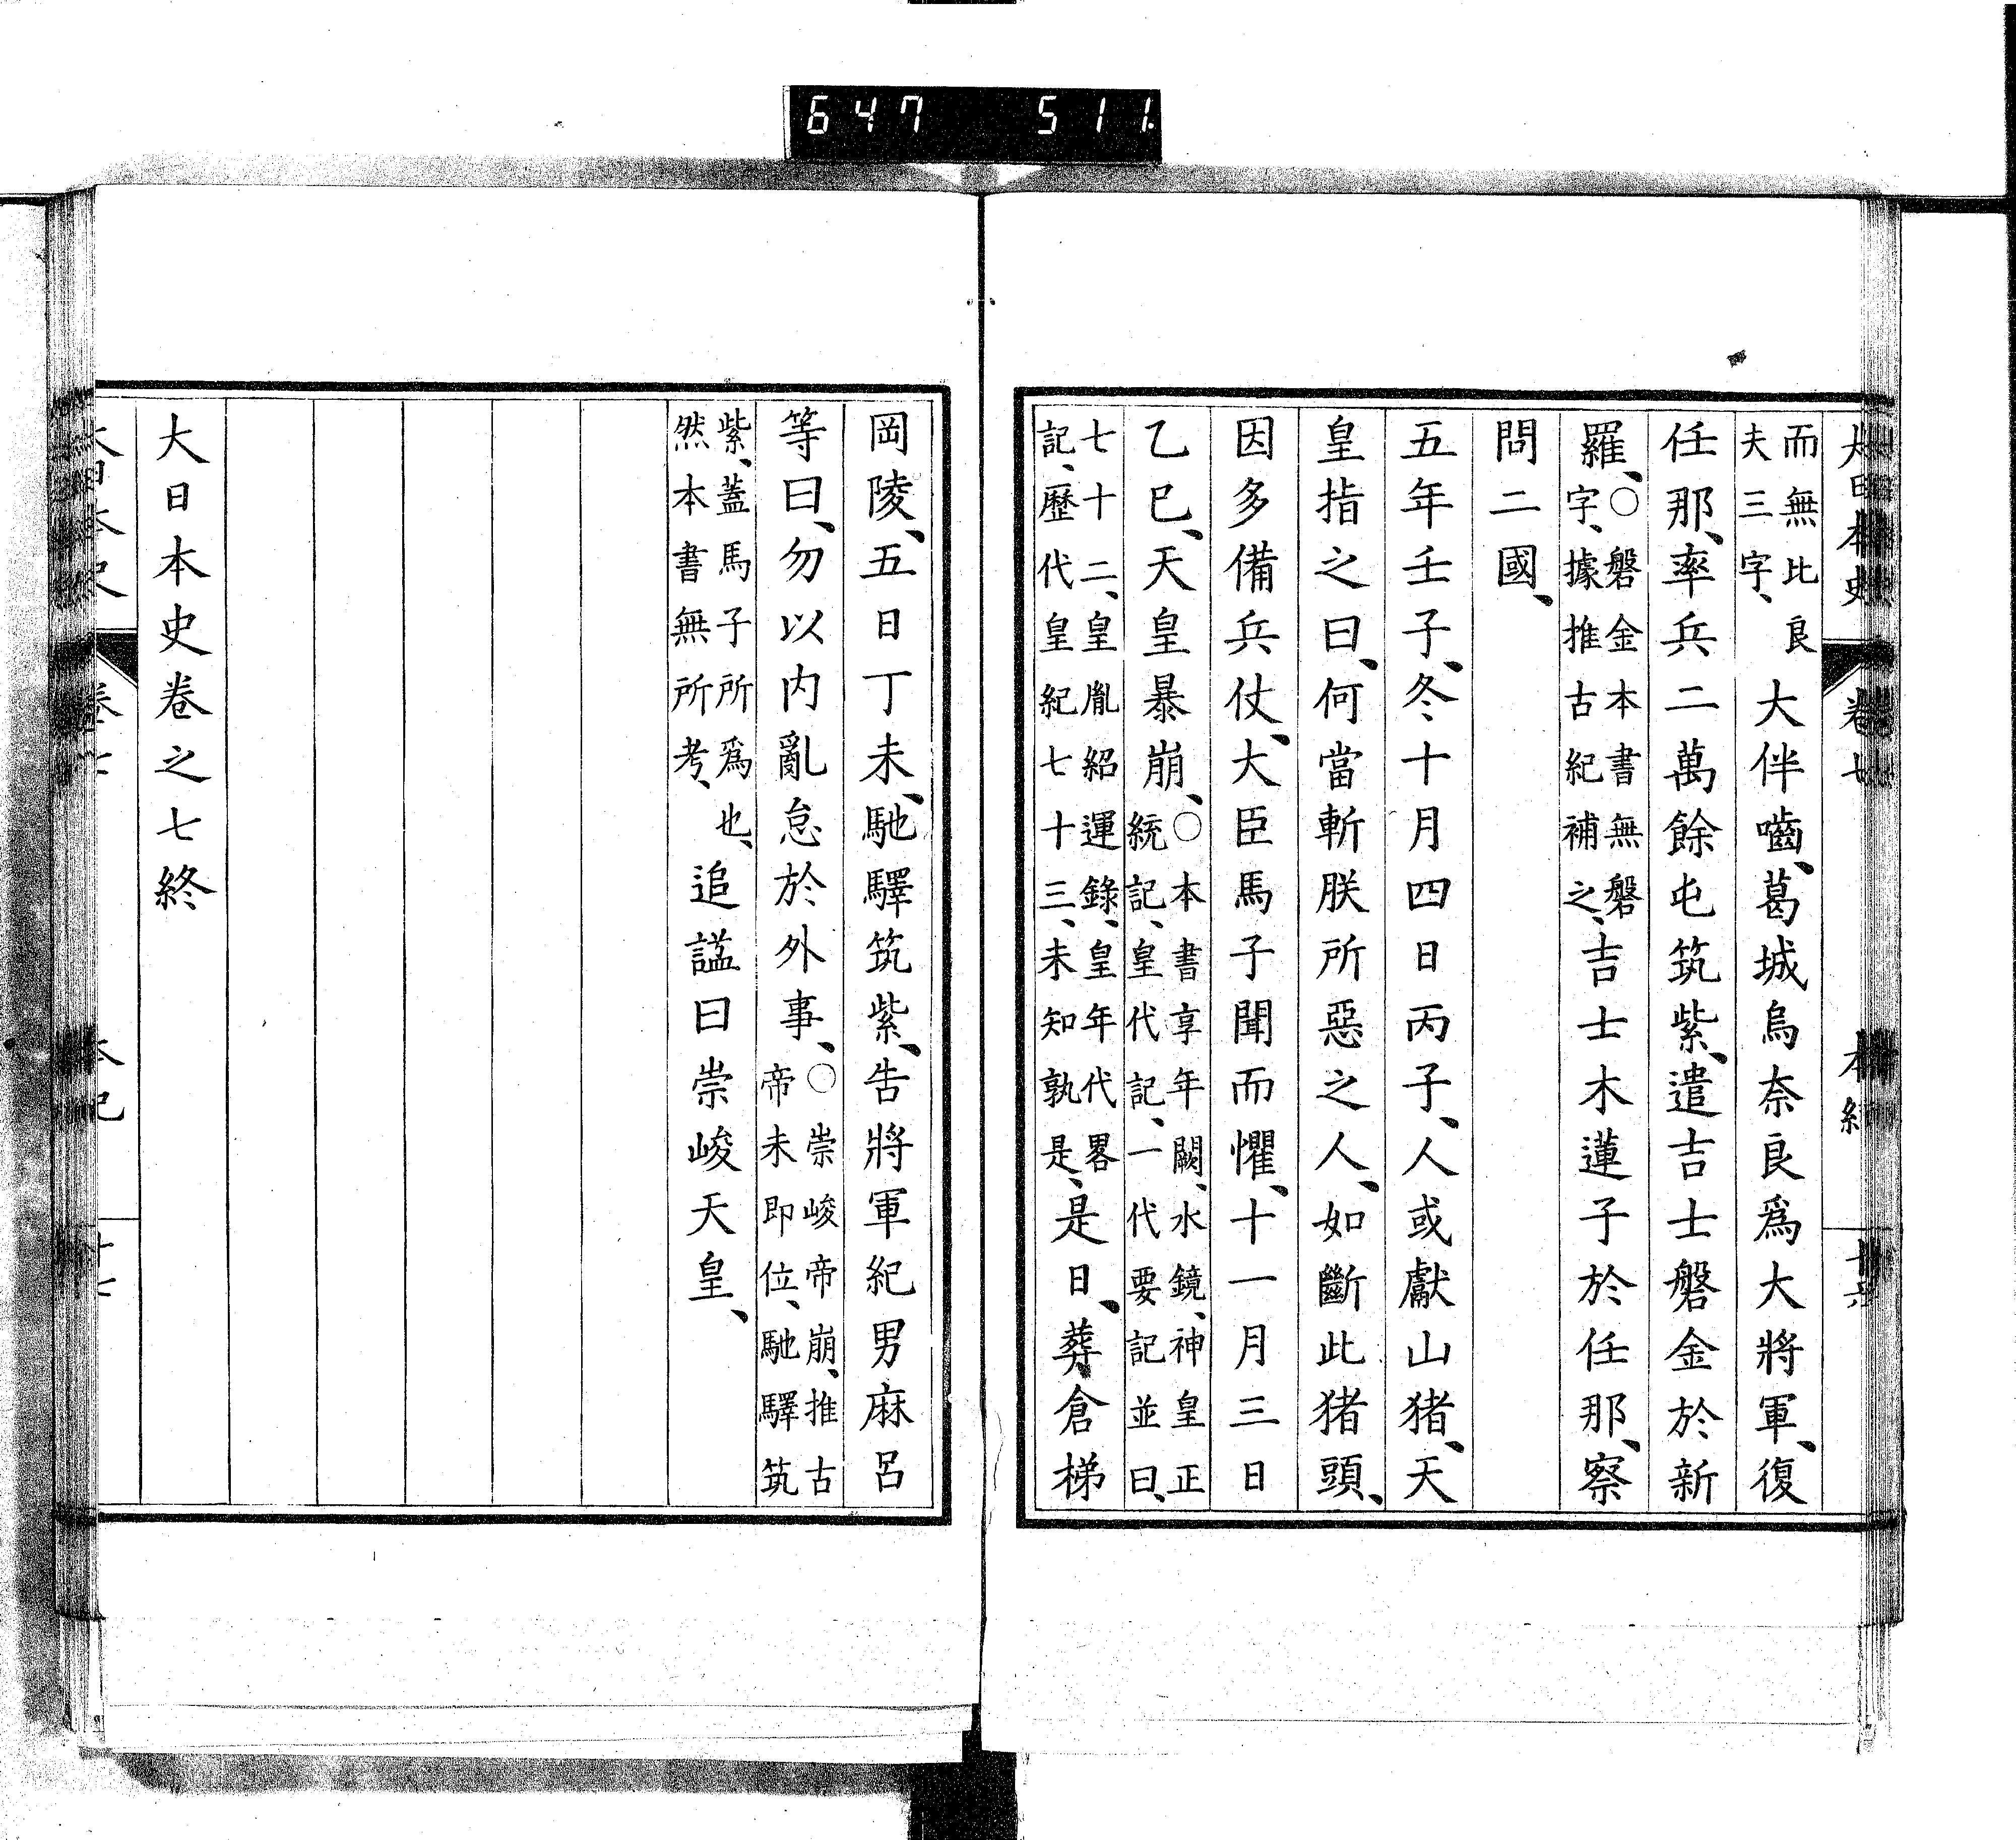 647 511
大日本史 卷七 本紀
而無比良夫三字、大伴嚙、葛城烏奈良爲大將軍、復
任那、率兵二萬餘屯筑紫、遣吉士磐金於新
羅、○磐金本書無磐字、據推古紀補之、吉士木蓮子於任那、察
問二國、
五年壬子、冬十月四日丙子、人或獻山猪、天
皇指之曰、何當斬朕所惡之人、如斷此猪頭、
因多備兵仗、大臣馬子聞而懼、十一月三日
乙巳、天皇暴崩、○本書享年闕、水鏡、神皇正統記、皇代記、一代要記並曰、
七十二、皇胤紹運錄、皇年代畧記、歷代皇紀七十三、未知孰是、是日、葬倉梯
岡陵、五日丁未、馳驛筑紫、告將軍紀男麻呂
等曰、勿以内亂怠於外事、○崇峻帝崩、推古帝未即位、馳驛筑
紫、蓋馬子所爲也、然本書無所考、追諡曰崇峻天皇、
大日本史卷之七終